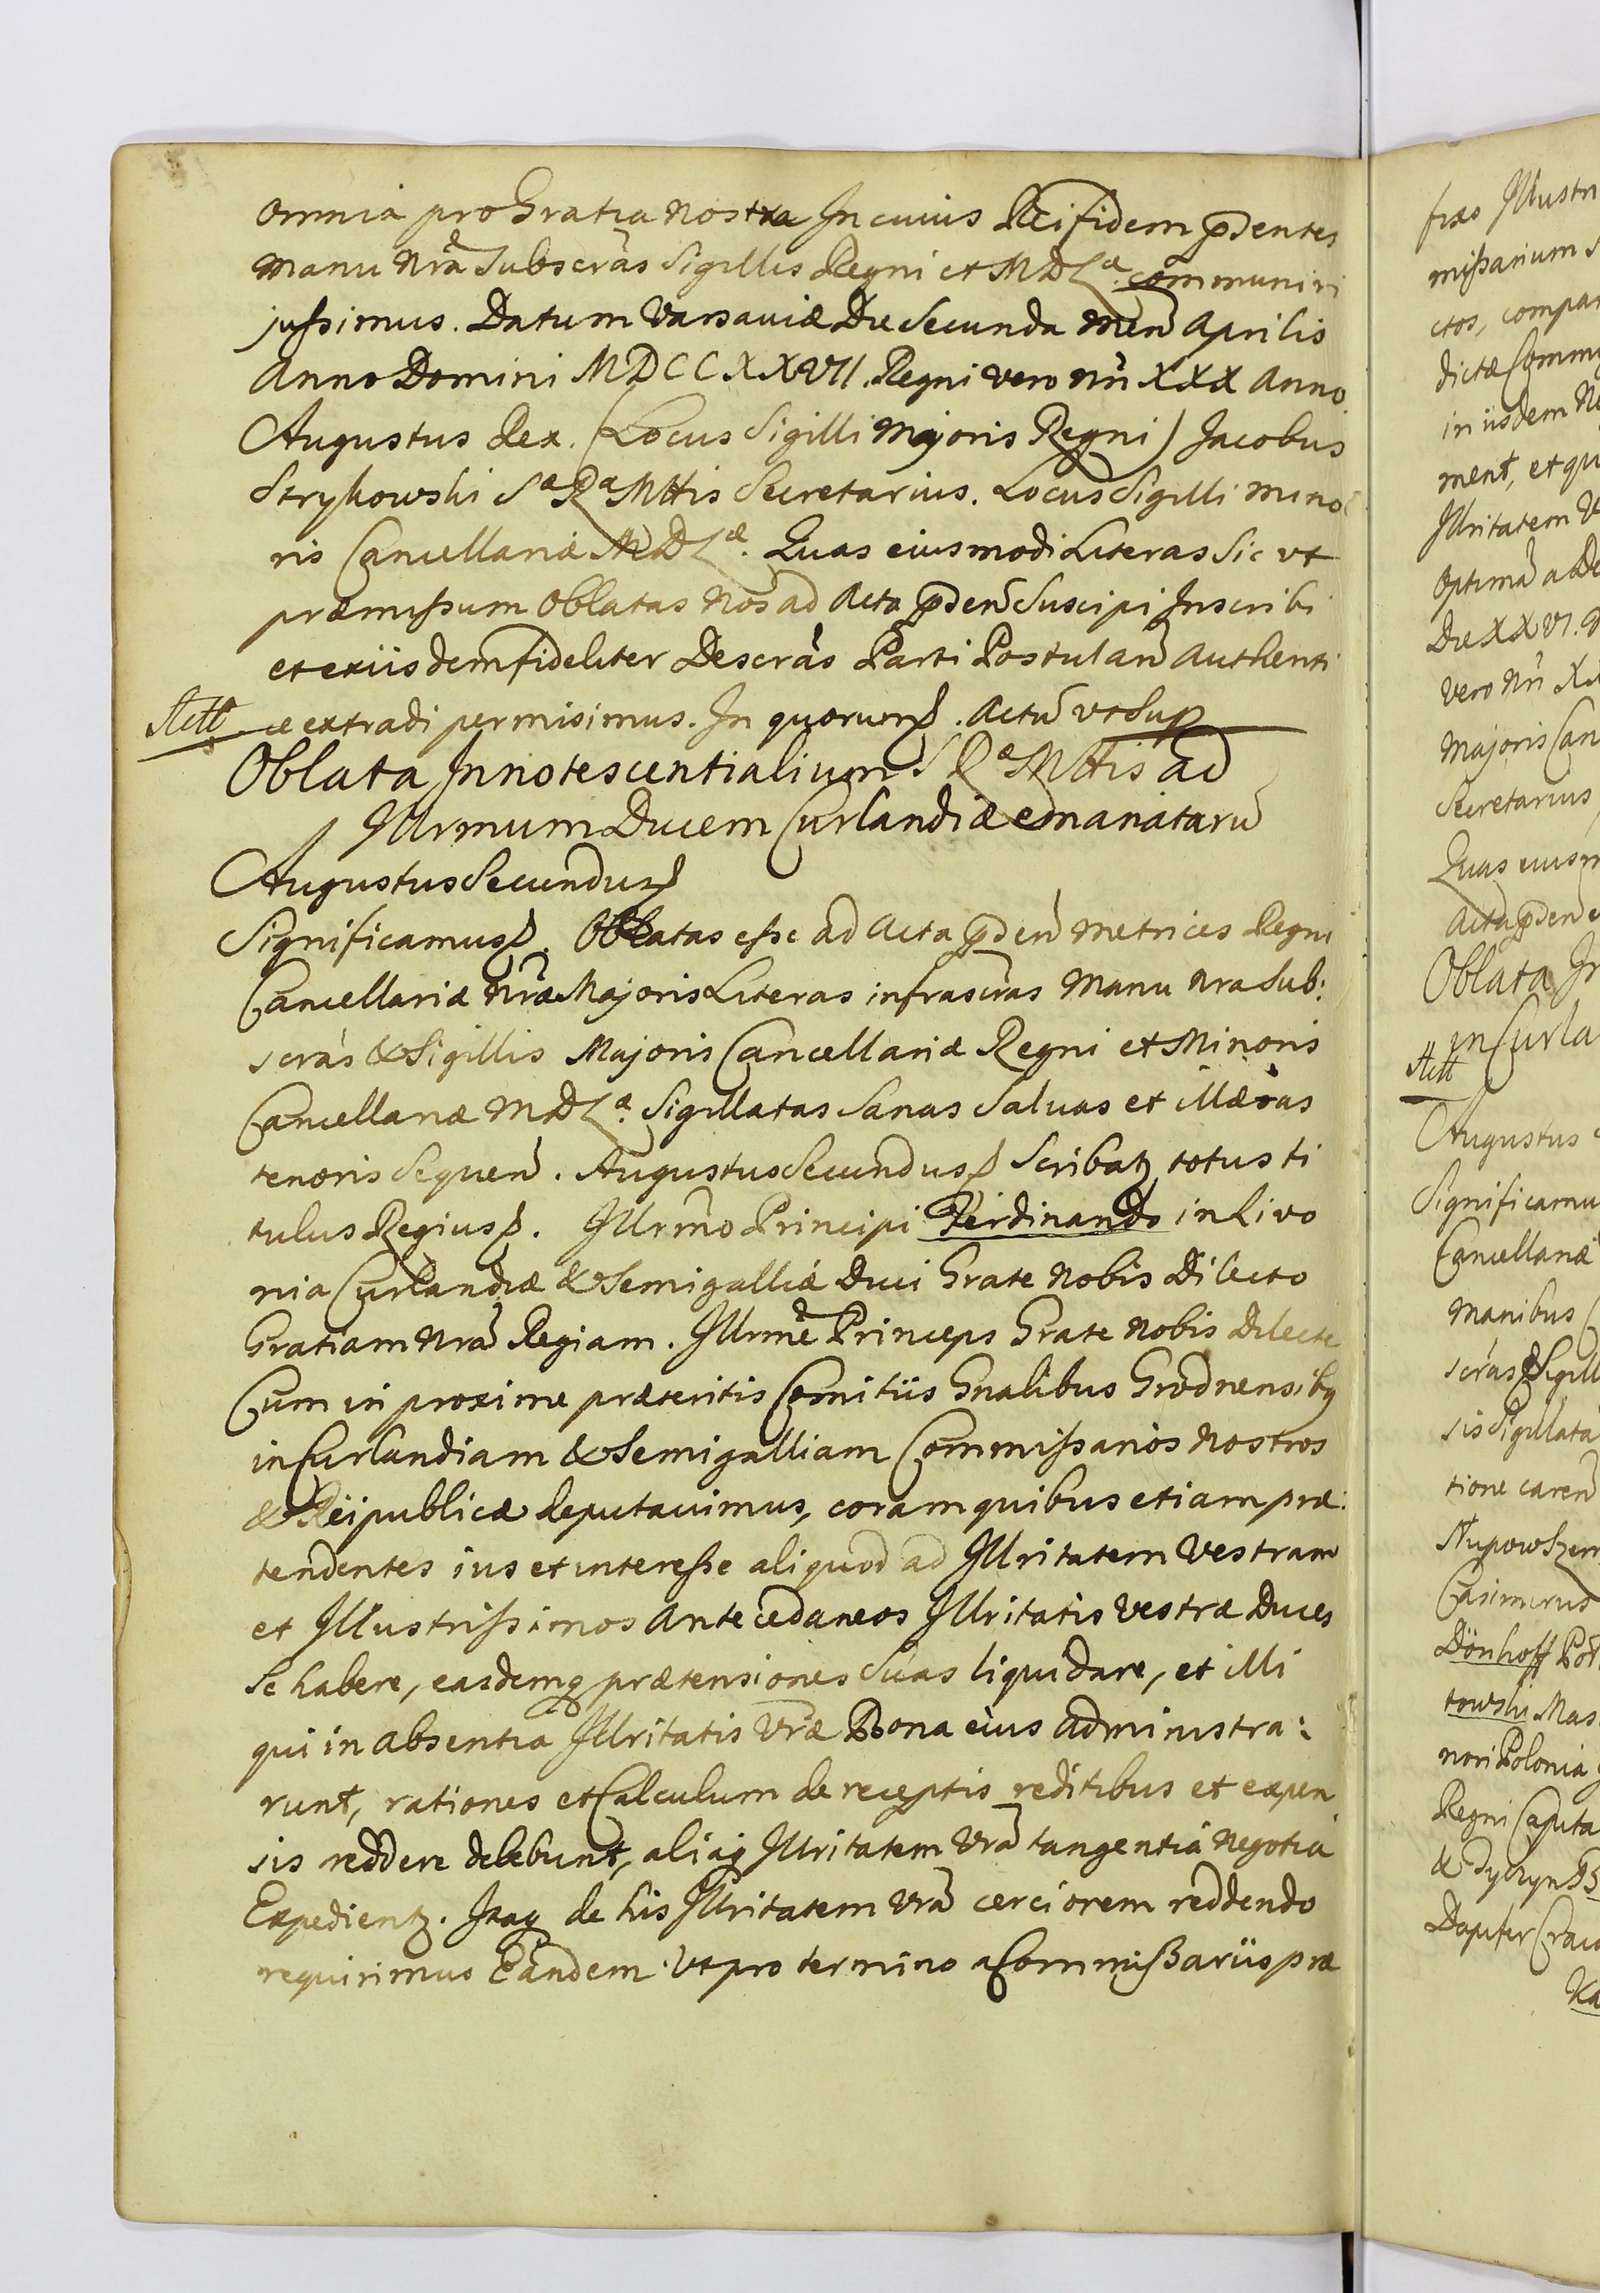 omnia pro Gratia Nostra In cuius Rei fidem pñdentes
manu nrã Subscrãs Sigillis Regni et MDLæ communiri
jussimus. Datum Varsaviæ Die Secunda Men̄ Aprilis
Anno Domini MDCCXXVII. Regni vero nr̄i XXX Anno
Augustus Rex. (Locus Sigilli Majoris Regni) Jacobus
Strykowski Sæ Ræ Mttis Secretarius. Locus Sigilli mino
ris Cancellariæ MDLæ. Quas eiusmodi Literas Sic vt
præmissum Oblatas Nos ad Acta pñden̄ Suscipi Inscribi
et ex iisdem fideliter Descrãs Parti Postulan̄ Authenti
ce extradi permisimus. In quorum. Actũ vt Sup
Oblata Innotescentialium S Ræ Mttis ad
Illrmum Ducem Curlandiæ emanataru
Augustus Secundus
Significamus. Oblatas esse ad Acta pñden̄ Metrices Regni
Cancellariæ Nræ Majoris Literas infrascrãs Manu Nra Sub:
scrãs & Sigillis Majoris Cancellariæ Regni et Minoris
Cancellariæ MDLæ. Sigillatas Sanas Salvas et illæsas
tenoris Sequen̄. Augustus Secundus Scribatz totus ti
tulus Regius. Illrm̃o Principi Ferdinando in Livo
nia Curlandiæ & Semigalliæ Duci Grate Nobis Dilecto
Gratiam Nrã Regiam. Illrmẽ Princeps Grate Nobis Dilecte
Cum in proxime præteritis Comitiis Gnalibus Grodnensibq
in Curlandiam & Semigalliam Commissarios Nostros
& Reipublicæ deputavimus, coram quibus etiam præ:
tendentes ius et interesse aliquod ad Illritatem Vestram
et Illustrissimos Antecedaneos Illritatis Vestræ Duces
Se habere, easdemq prætensiones Suas liquidare, et illi
qui in absentia Illritatis Vræ Bona eius administra:
runt, rationes et Calculum de receptis reditibus et expen
sis reddere debebunt, aliaq Illritatem Vrã tangentia Negotia
Expedientz. Itaq de his Illritatem Vrã cerciorem reddendo
requirimus Eandem. Vt pro termino a Commissariis præ
Actt
fixo Illustri
missarium S
ctos, compar
dictæ Commi
in iisdem Ne
ment, et qu
Illritatem V
Optimã a De
Die XXVI.
Vero Nr̄i
Majoris Can
Secretarius
Quas eiusm
Acta pñden̄
Oblata In
in Curla
Actt
Augustus
Significamu
Cancellariæ
manibus
scrãs & Sigill
sis Sigillata
tione caren̄
Casimirus
Dönhoff
towski Mas
nori Polonia
Regni Caputa
Dapifer Crac